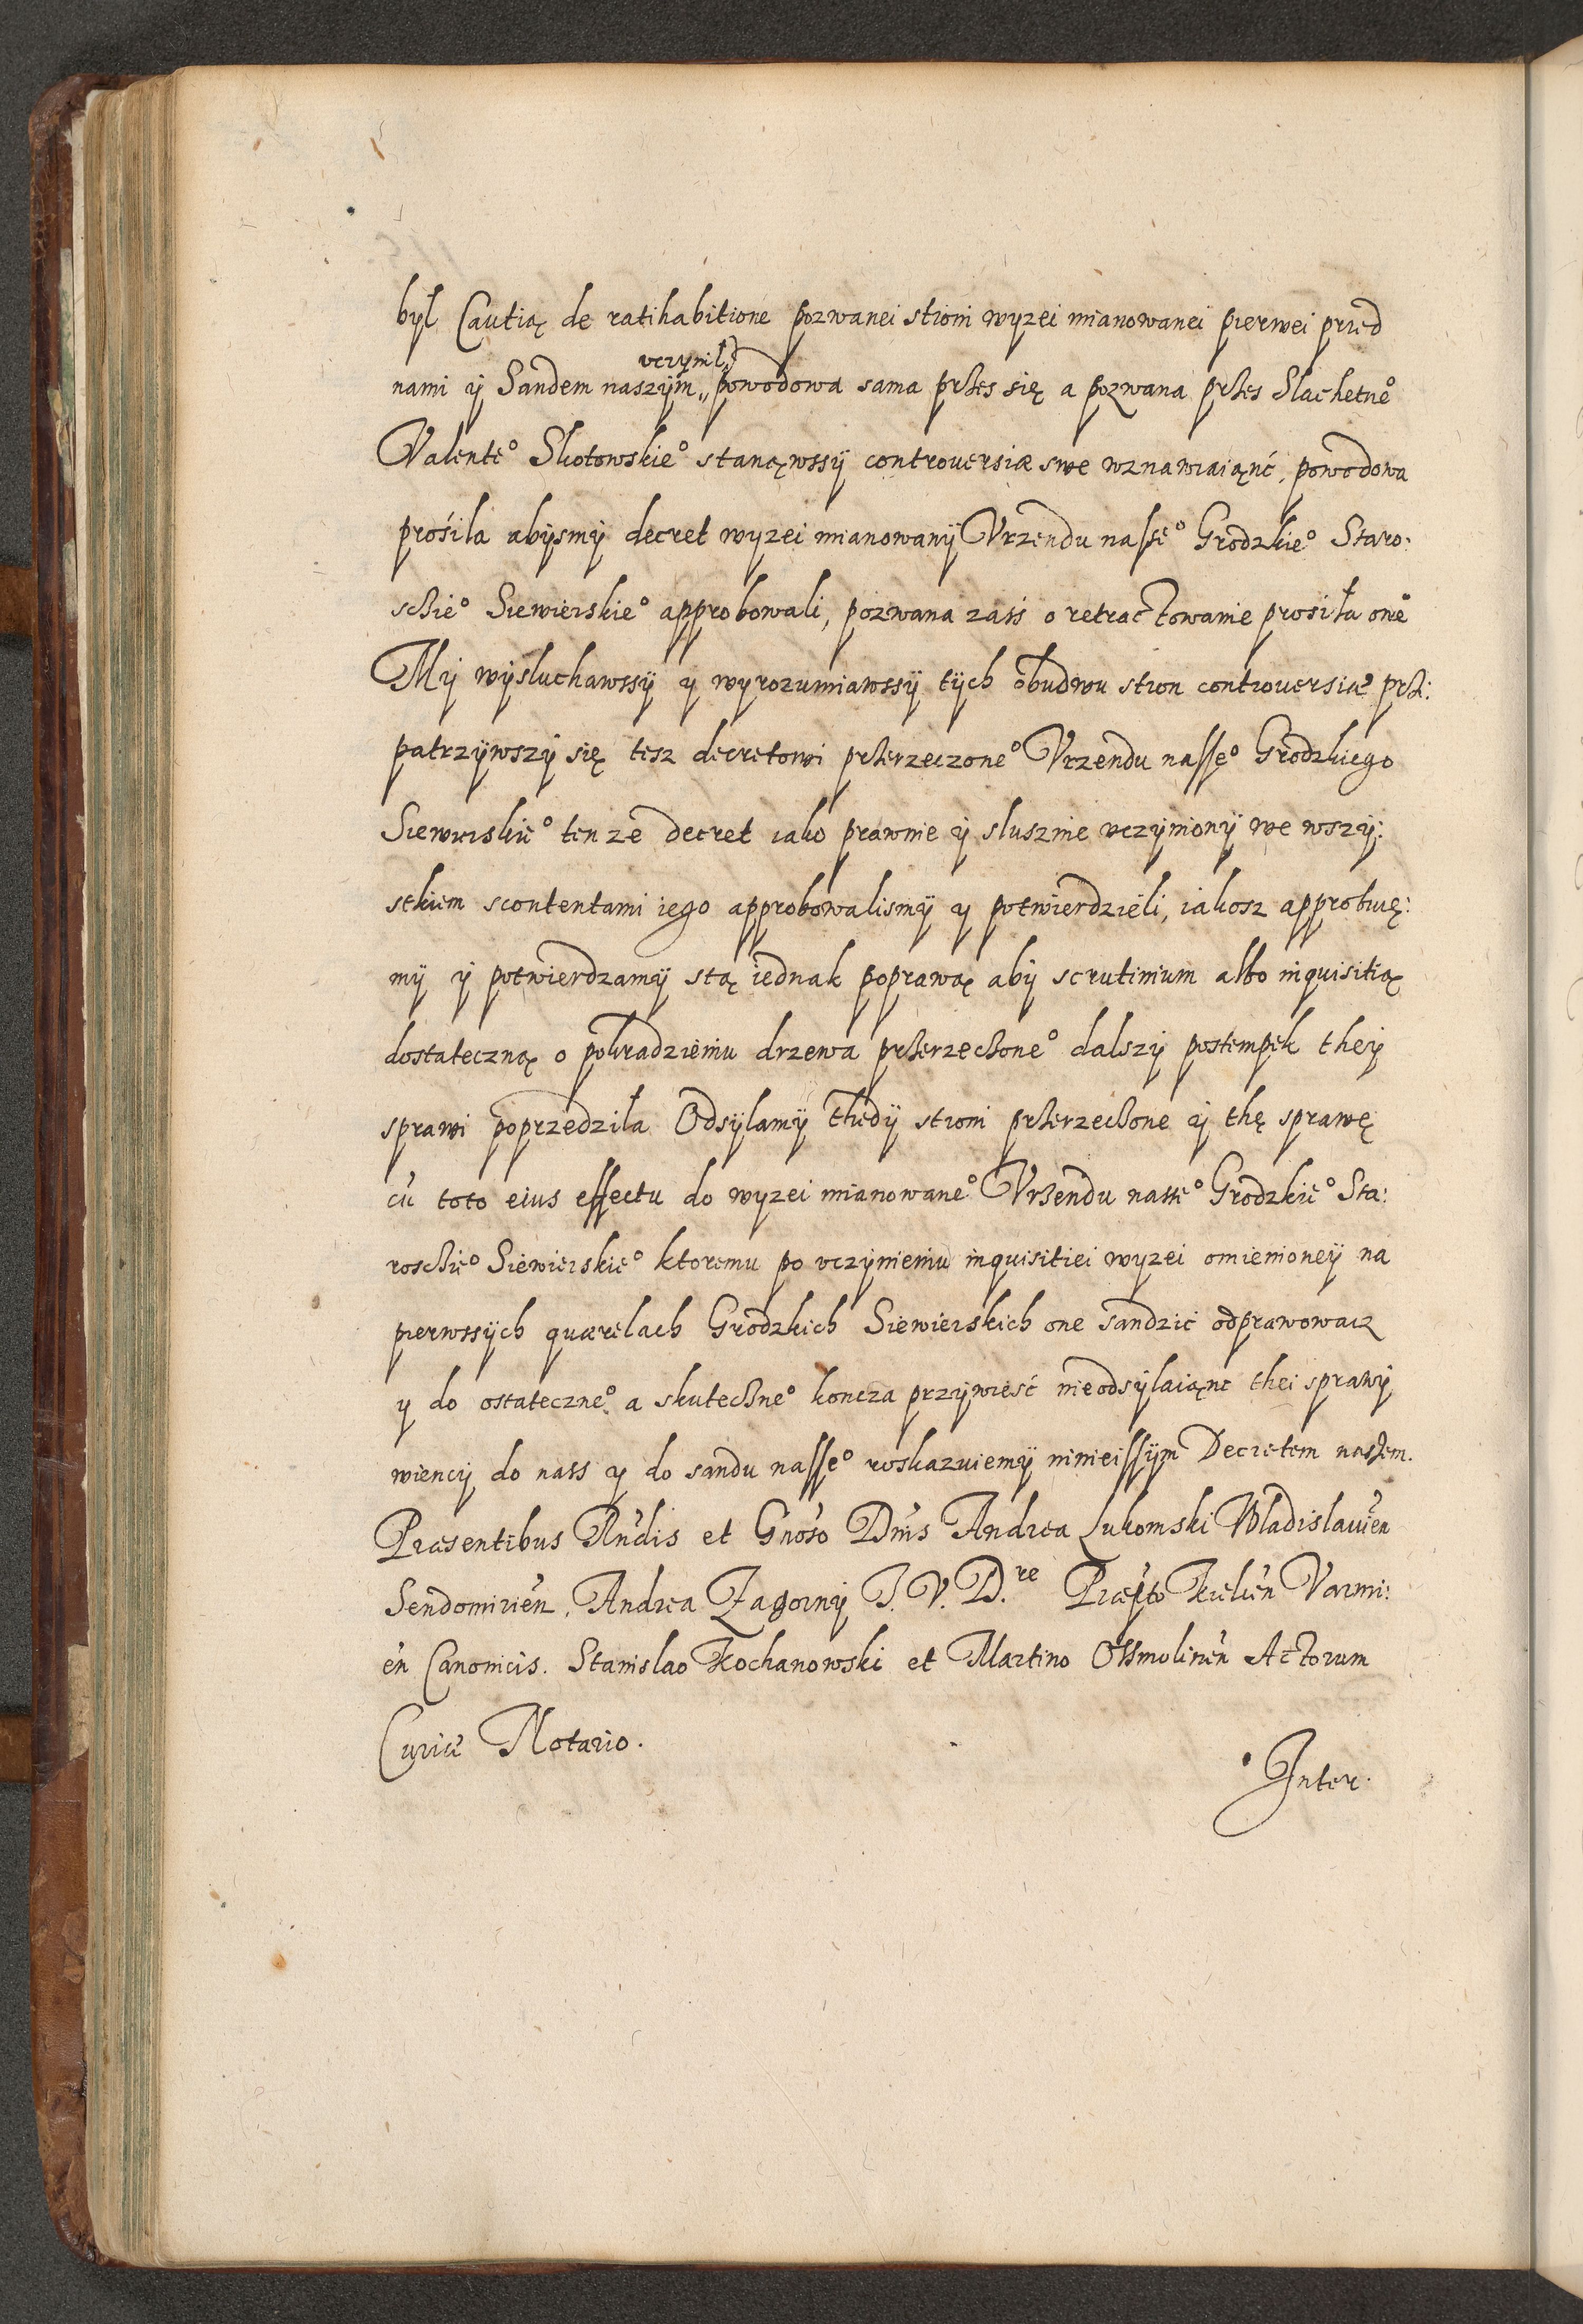 był Cautią de ratihabitione pozwanei stroni wyzei mianowanei pierwei przed
uczynił
nami ÿ Sandem naszÿm „ powodowa sama przes się a pozwana przes Slachetne°
Valente° Skotowskie° stanąwssÿ controversiæ swe wznawiaiąnć, powodowa
prośila abÿsmÿ decret wyzei mianowanÿ Vrzendu nasse° Grodzkie° Staro:
schie° Siewierskie° approbowali, pozwana zass o retractowanie prosiła one°
Mÿ wÿsluchawssÿ y wyrozumiawssÿ tÿch obudwu stron controversiæ prze:
patrzÿwszÿ się tesz decretowi przerzeczone° Vrzendu nasse° Grodzkiego
Siewierskie° ten ze decret iako prawnie ÿ slusznie uczÿnionÿ we wszÿ:
stkiem scontentami iego approbowalismÿ y potwierdzieli, iakosz approbuię:
mÿ ÿ potwierdzamÿ stą iednak poprawą abÿ scrutinium albo inquisitią
dostateczną o pokradzieniu drzewa przerzeczone° dalszÿ postempek theÿ
sprawi poprzedziła Odsÿlamÿ thedÿ stroni przerzeczone ÿ thę sprawę
cū toto eius effectu do wyzei mianowane° Vrzendu nasse° Grodzkie° Sta:
roschie° Siewierskie° ktoremu po uczÿnieniu inquisitiei wyzei omienioneÿ na
pierwssÿch quærelach Grodzkich Siewierskich one sandzić odprawowacz
y do ostateczne° a skuteczne° koncza przÿwieść nieodsÿlaiąnc thei sprawÿ
wiencÿ do nass y do sandu nasse° roskazuiemÿ ninieissÿm Decretem naszem.
Præsentibus Rndis et Gnoso Dnis Andrea Lukomski Wladislavien
Sendomirien, Andrea Zagornÿ J. V. D.re Præpto Kielcen Varmi:
en Canonicis. Stanislao Kochanowski et Martino Ossmolinen Actorum
Curiæ Notario.
Inter.